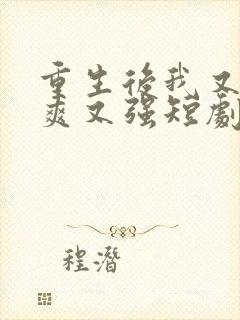 重生後我又
爽又强短劇
程潛